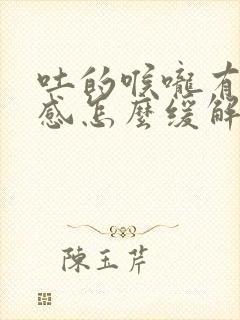 吐的喉嚨有
感怎麼緩解
陳玉芹